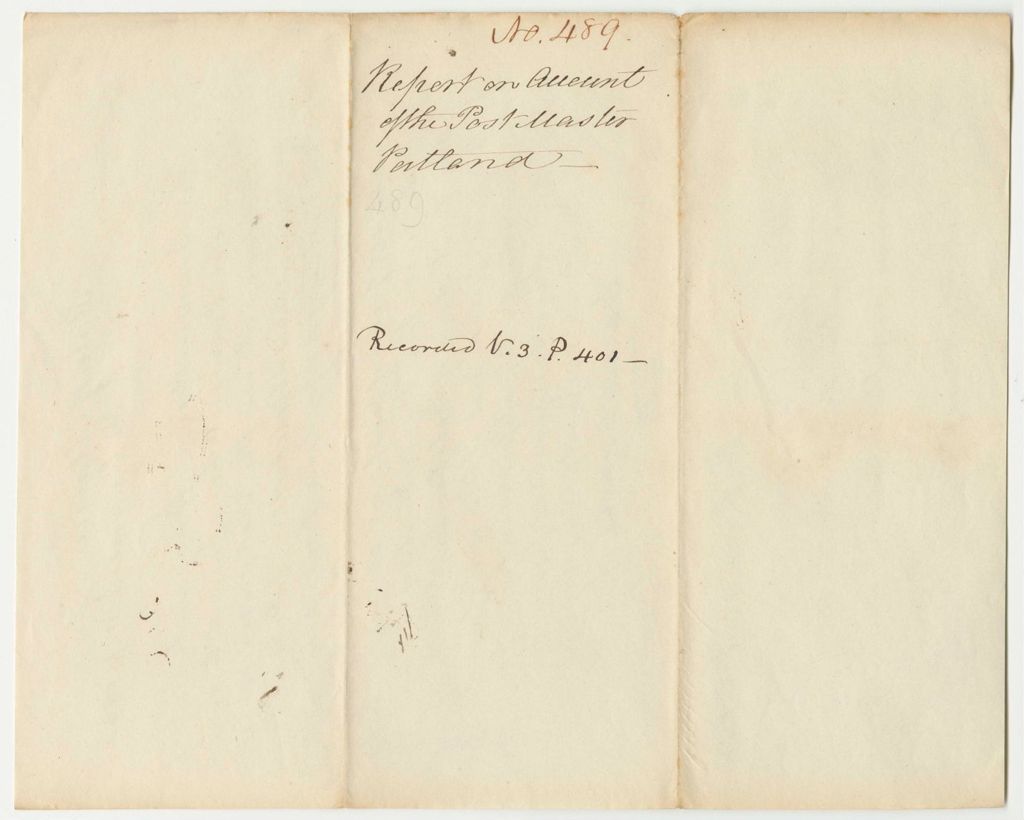 No. 489.
Report on Account
of the Post Master
Portland —
489
Recorded V. 3. P. 401 —